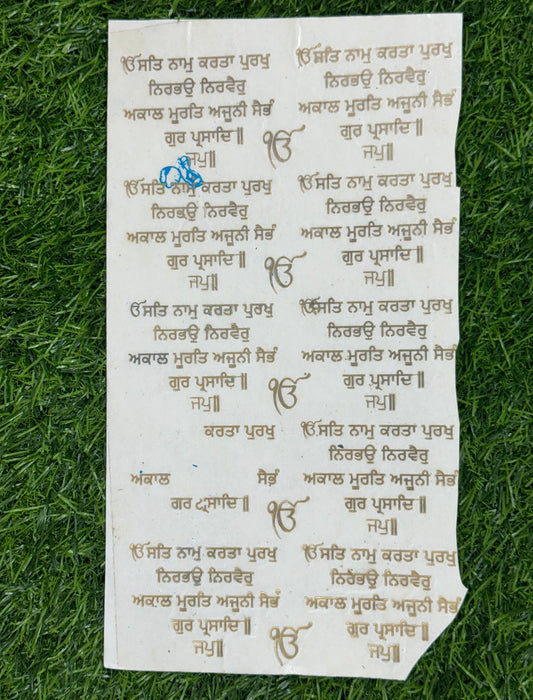 ੴਸਤਿ ਨਾਮੁ ਕਰਤਾ ਪੁਰਖੁ
ਨਿਰਭਉ ਨਿਰਵੈਰੁ
ਅਕਾਲ ਮੂਰਤਿ ਅਜੂਨੀ ਸੈਭੰ
ਗੁਰ ਪ੍ਰਸਾਦਿ॥
ਜਪੁ॥
ੴਸਤਿ ਨਾਮੁ ਕਰਤਾ ਪੁਰਖੁ
ਨਿਰਭਉ ਨਿਰਵੈਰੁ
ਅਕਾਲ ਮੂਰਤਿ ਅਜੂਨੀ ਸੈਭੰ
ਗੁਰ ਪ੍ਰਸਾਦਿ॥
ਜਪੁ॥
ੴ
ੴਸਤਿ ਨਾਮੁ ਕਰਤਾ ਪੁਰਖੁ
ਨਿਰਭਉ ਨਿਰਵੈਰੁ
ਅਕਾਲ ਮੂਰਤਿ ਅਜੂਨੀ ਸੈਭੰ
ਗੁਰ ਪ੍ਰਸਾਦਿ॥
ਜਪੁ॥
ੴਸਤਿ ਨਾਮੁ ਕਰਤਾ ਪੁਰਖੁ
ਨਿਰਭਉ ਨਿਰਵੈਰੁ
ਅਕਾਲ ਮੂਰਤਿ ਅਜੂਨੀ ਸੈਭੰ
ਗੁਰ ਪ੍ਰਸਾਦਿ॥
ਜਪੁ॥
ੴ
ੴਸਤਿ ਨਾਮੁ ਕਰਤਾ ਪੁਰਖੁ
ਨਿਰਭਉ ਨਿਰਵੈਰੁ
ਅਕਾਲ ਮੂਰਤਿ ਅਜੂਨੀ ਸੈਭੰ
ਗੁਰ ਪ੍ਰਸਾਦਿ॥
ਜਪੁ॥
ੴਸਤਿ ਨਾਮੁ ਕਰਤਾ ਪੁਰਖੁ
ਨਿਰਭਉ ਨਿਰਵੈਰੁ
ਅਕਾਲ ਮੂਰਤਿ ਅਜੂਨੀ ਸੈਭੰ
ਗੁਰ ਪ੍ਰਸਾਦਿ॥
ਜਪੁ॥
ੴ
ਕਰਤਾ ਪੁਰਖੁ
ਅਕਾਲ ਸੈਭੰ
ਗਰ
ੴਸਤਿ ਨਾਮੁ ਕਰਤਾ ਪੁਰਖੁ
ਨਿਰਭਉ ਨਿਰਵੈਰੁ
ਅਕਾਲ ਮੂਰਤਿ ਅਜੂਨੀ ਸੈਭੰ
ਗੁਰ ਪ੍ਰਸਾਦਿ॥
ਜਪੁ॥
ੴ
ੴਸਤਿ ਨਾਮੁ ਕਰਤਾ ਪੁਰਖੁ
ਨਿਰਭਉ ਨਿਰਵੈਰੁ
ਅਕਾਲ ਮੂਰਤਿ ਅਜੂਨੀ ਸੈਭੰ
ਗੁਰ ਪ੍ਰਸਾਦਿ॥
ਜਪੁ॥
ੴਸਤਿ ਨਾਮੁ ਕਰਤਾ ਪੁਰਖੁ
ਨਿਰਭਉ ਨਿਰਵੈਰੁ
ਅਕਾਲ ਮੂਰਤਿ ਅਜੂਨੀ ਸੈਭੰ
ਗੁਰ ਪ੍ਰਸਾਦਿ॥
ਜਪੁ॥
ੴ